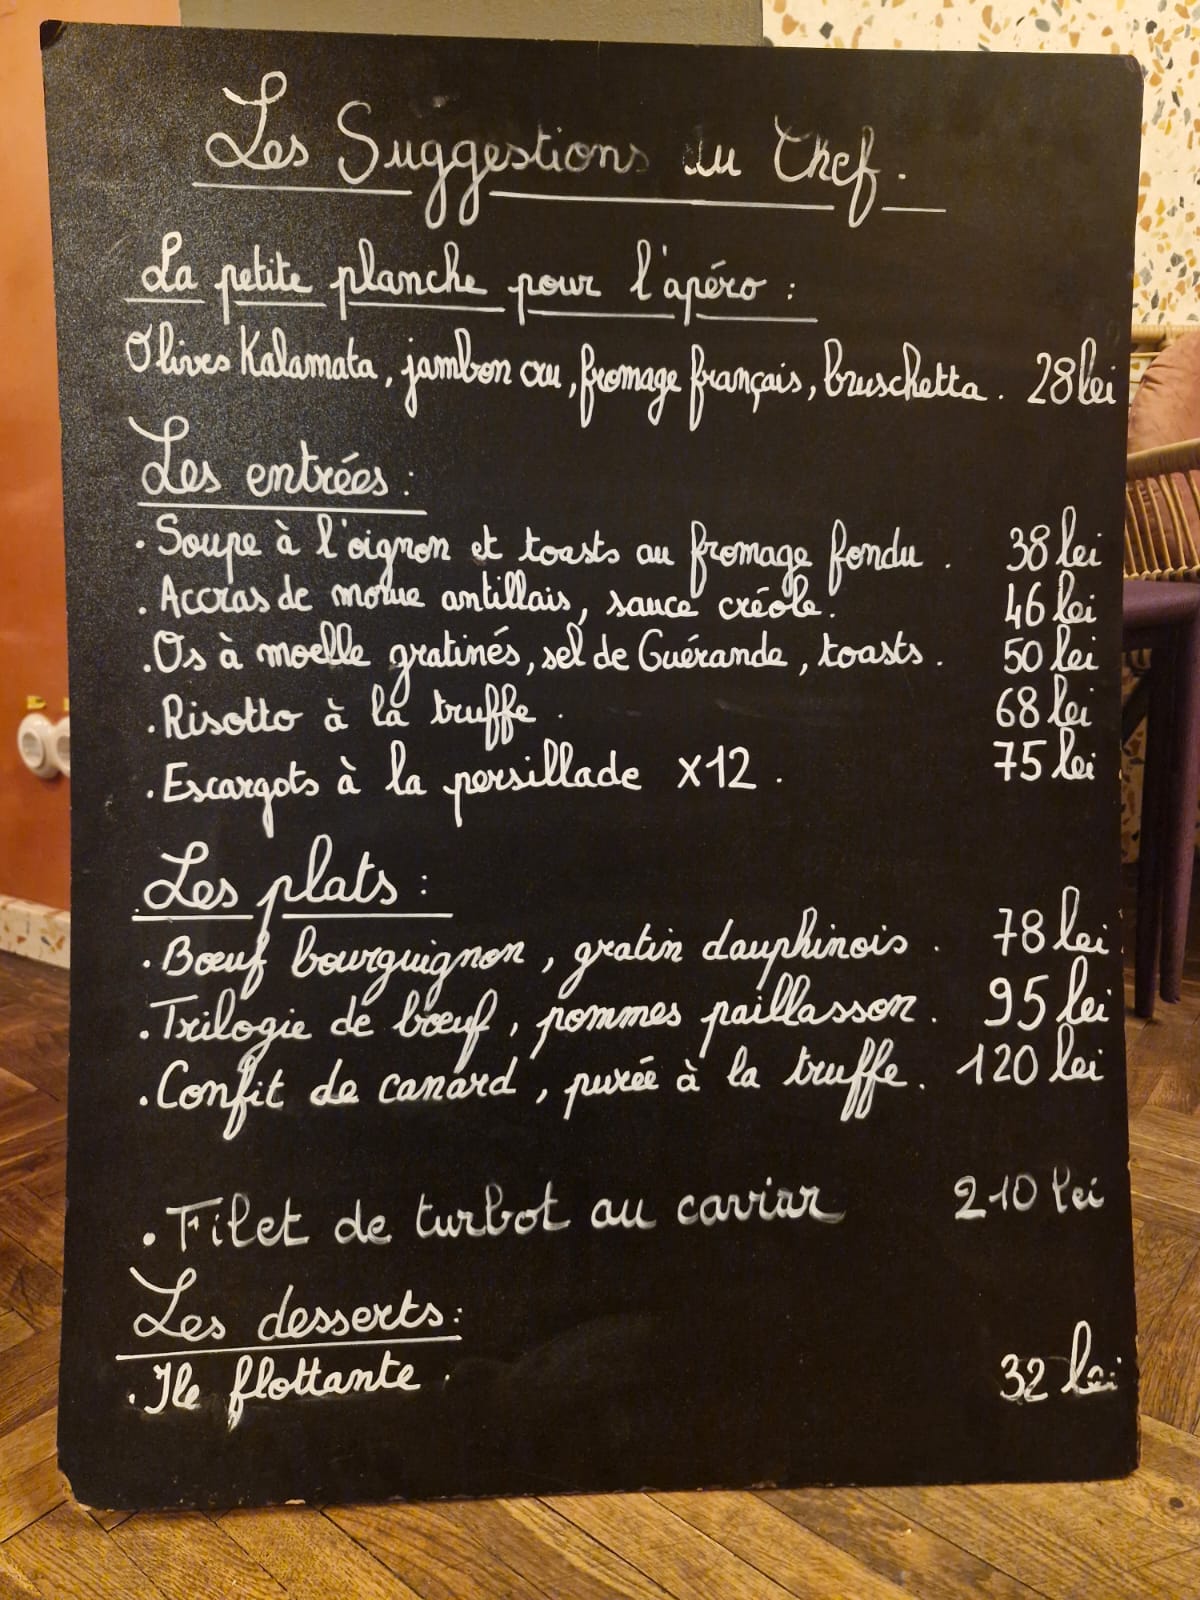 Les Suggestions du Chef.
La petite planche pour l'apéro :
Olives Kalamata, jambon cru, fromage français, bruschetta. 28 lei
Les entrées :
. Soupe à l'oignon et toasts au fromage fondu. 38 lei
. Accras de morue antillais, sauce créole. 46 lei
. Os à moelle gratinés, sel de Guérande, toasts. 50 lei
. Risotto à la truffe. 68 lei
. Escargots à la persillade x12. 75 lei
Les plats :
. Bœuf bourguignon, gratin dauphinois. 78 lei
. Trilogie de bœuf, pommes paillasson. 95 lei
. Confit de canard, purée à la truffe. 120 lei
. Filet de turbot au caviar 210 lei
Les desserts :
. Ile flottante. 32 lei